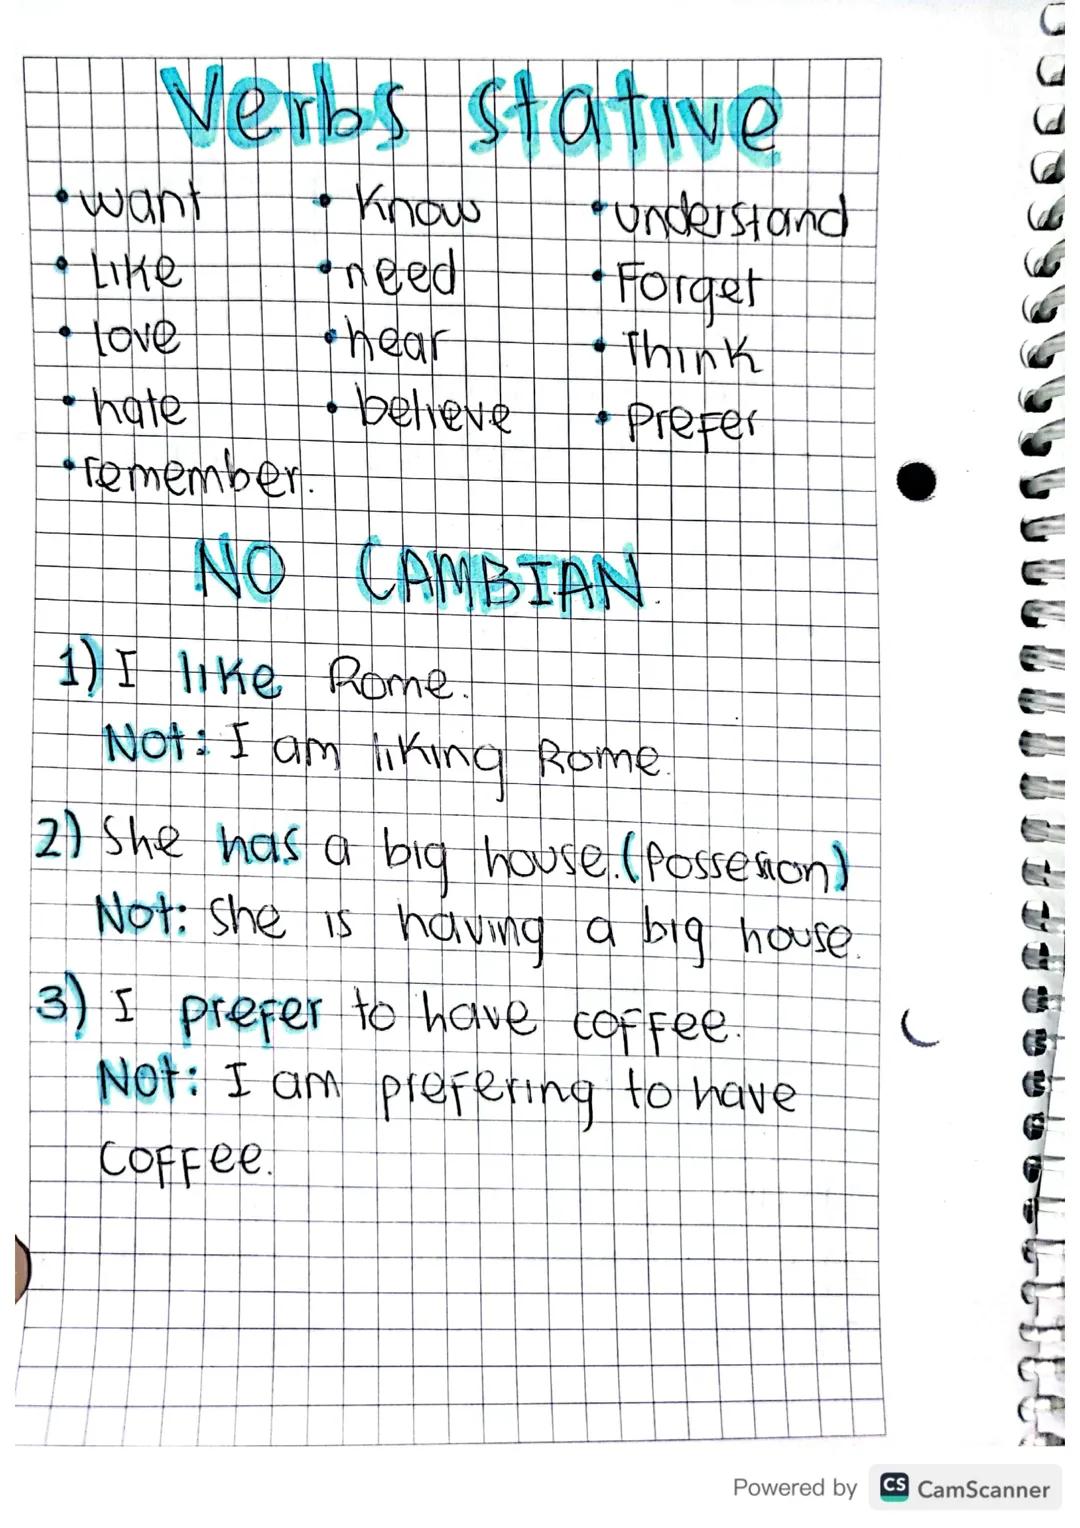 Verbs stative
• want • Know • understand
• Like • need • Forget
• love • hear • Think
• hate • believe • prefer
• remember.
NO CAMBIAN.
1) I like Rome.
Not: I am liking Rome.
2) She has a big house. (Possesion)
Not: She is having a big house.
3) I prefer to have coffee.
Not: I am prefering to have
coffee.
Powered by CS CamScanner